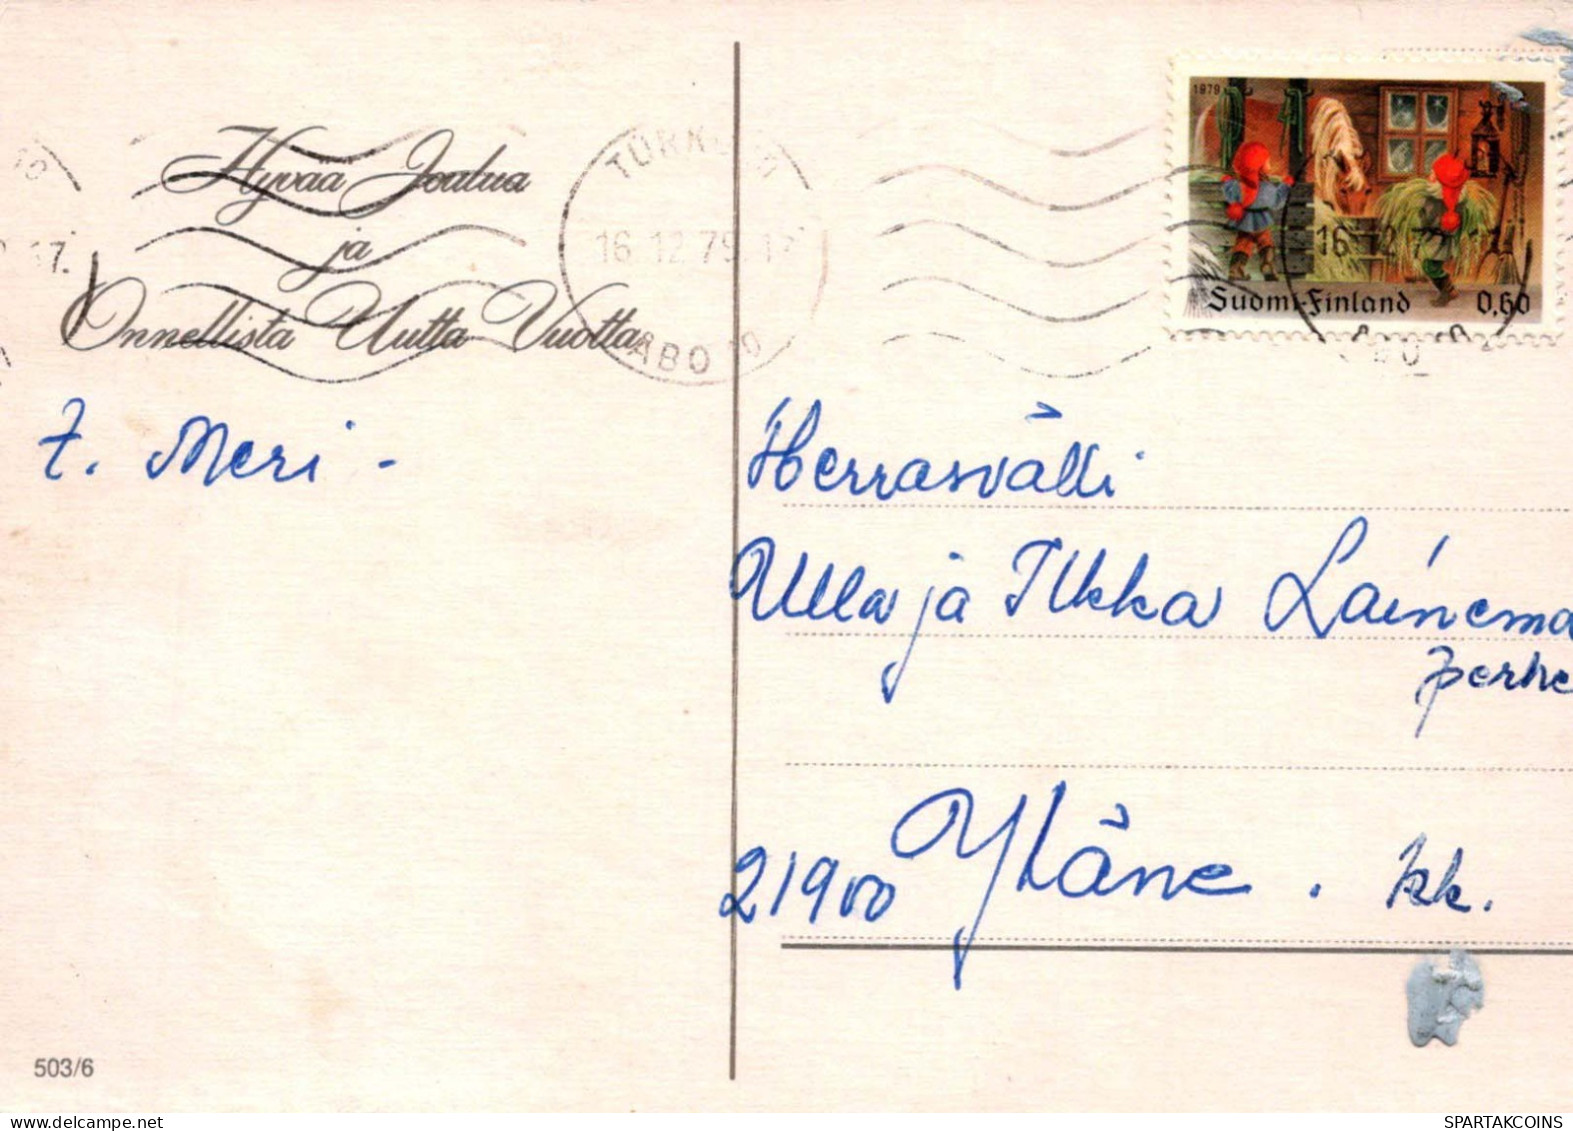 Hyvää Joulua
ja
Onnellista Uutta Vuotta
1979
Suomi-Finland 0,60
TURKU 10
16.12.79.17
ÅBO 10
16.12.79.17
17.
Meri -
Herrasvälli
Ulla ja Ilkka Lainema
perhe
21900 Yläne . kk.
503/6
SPARTAKCOINS